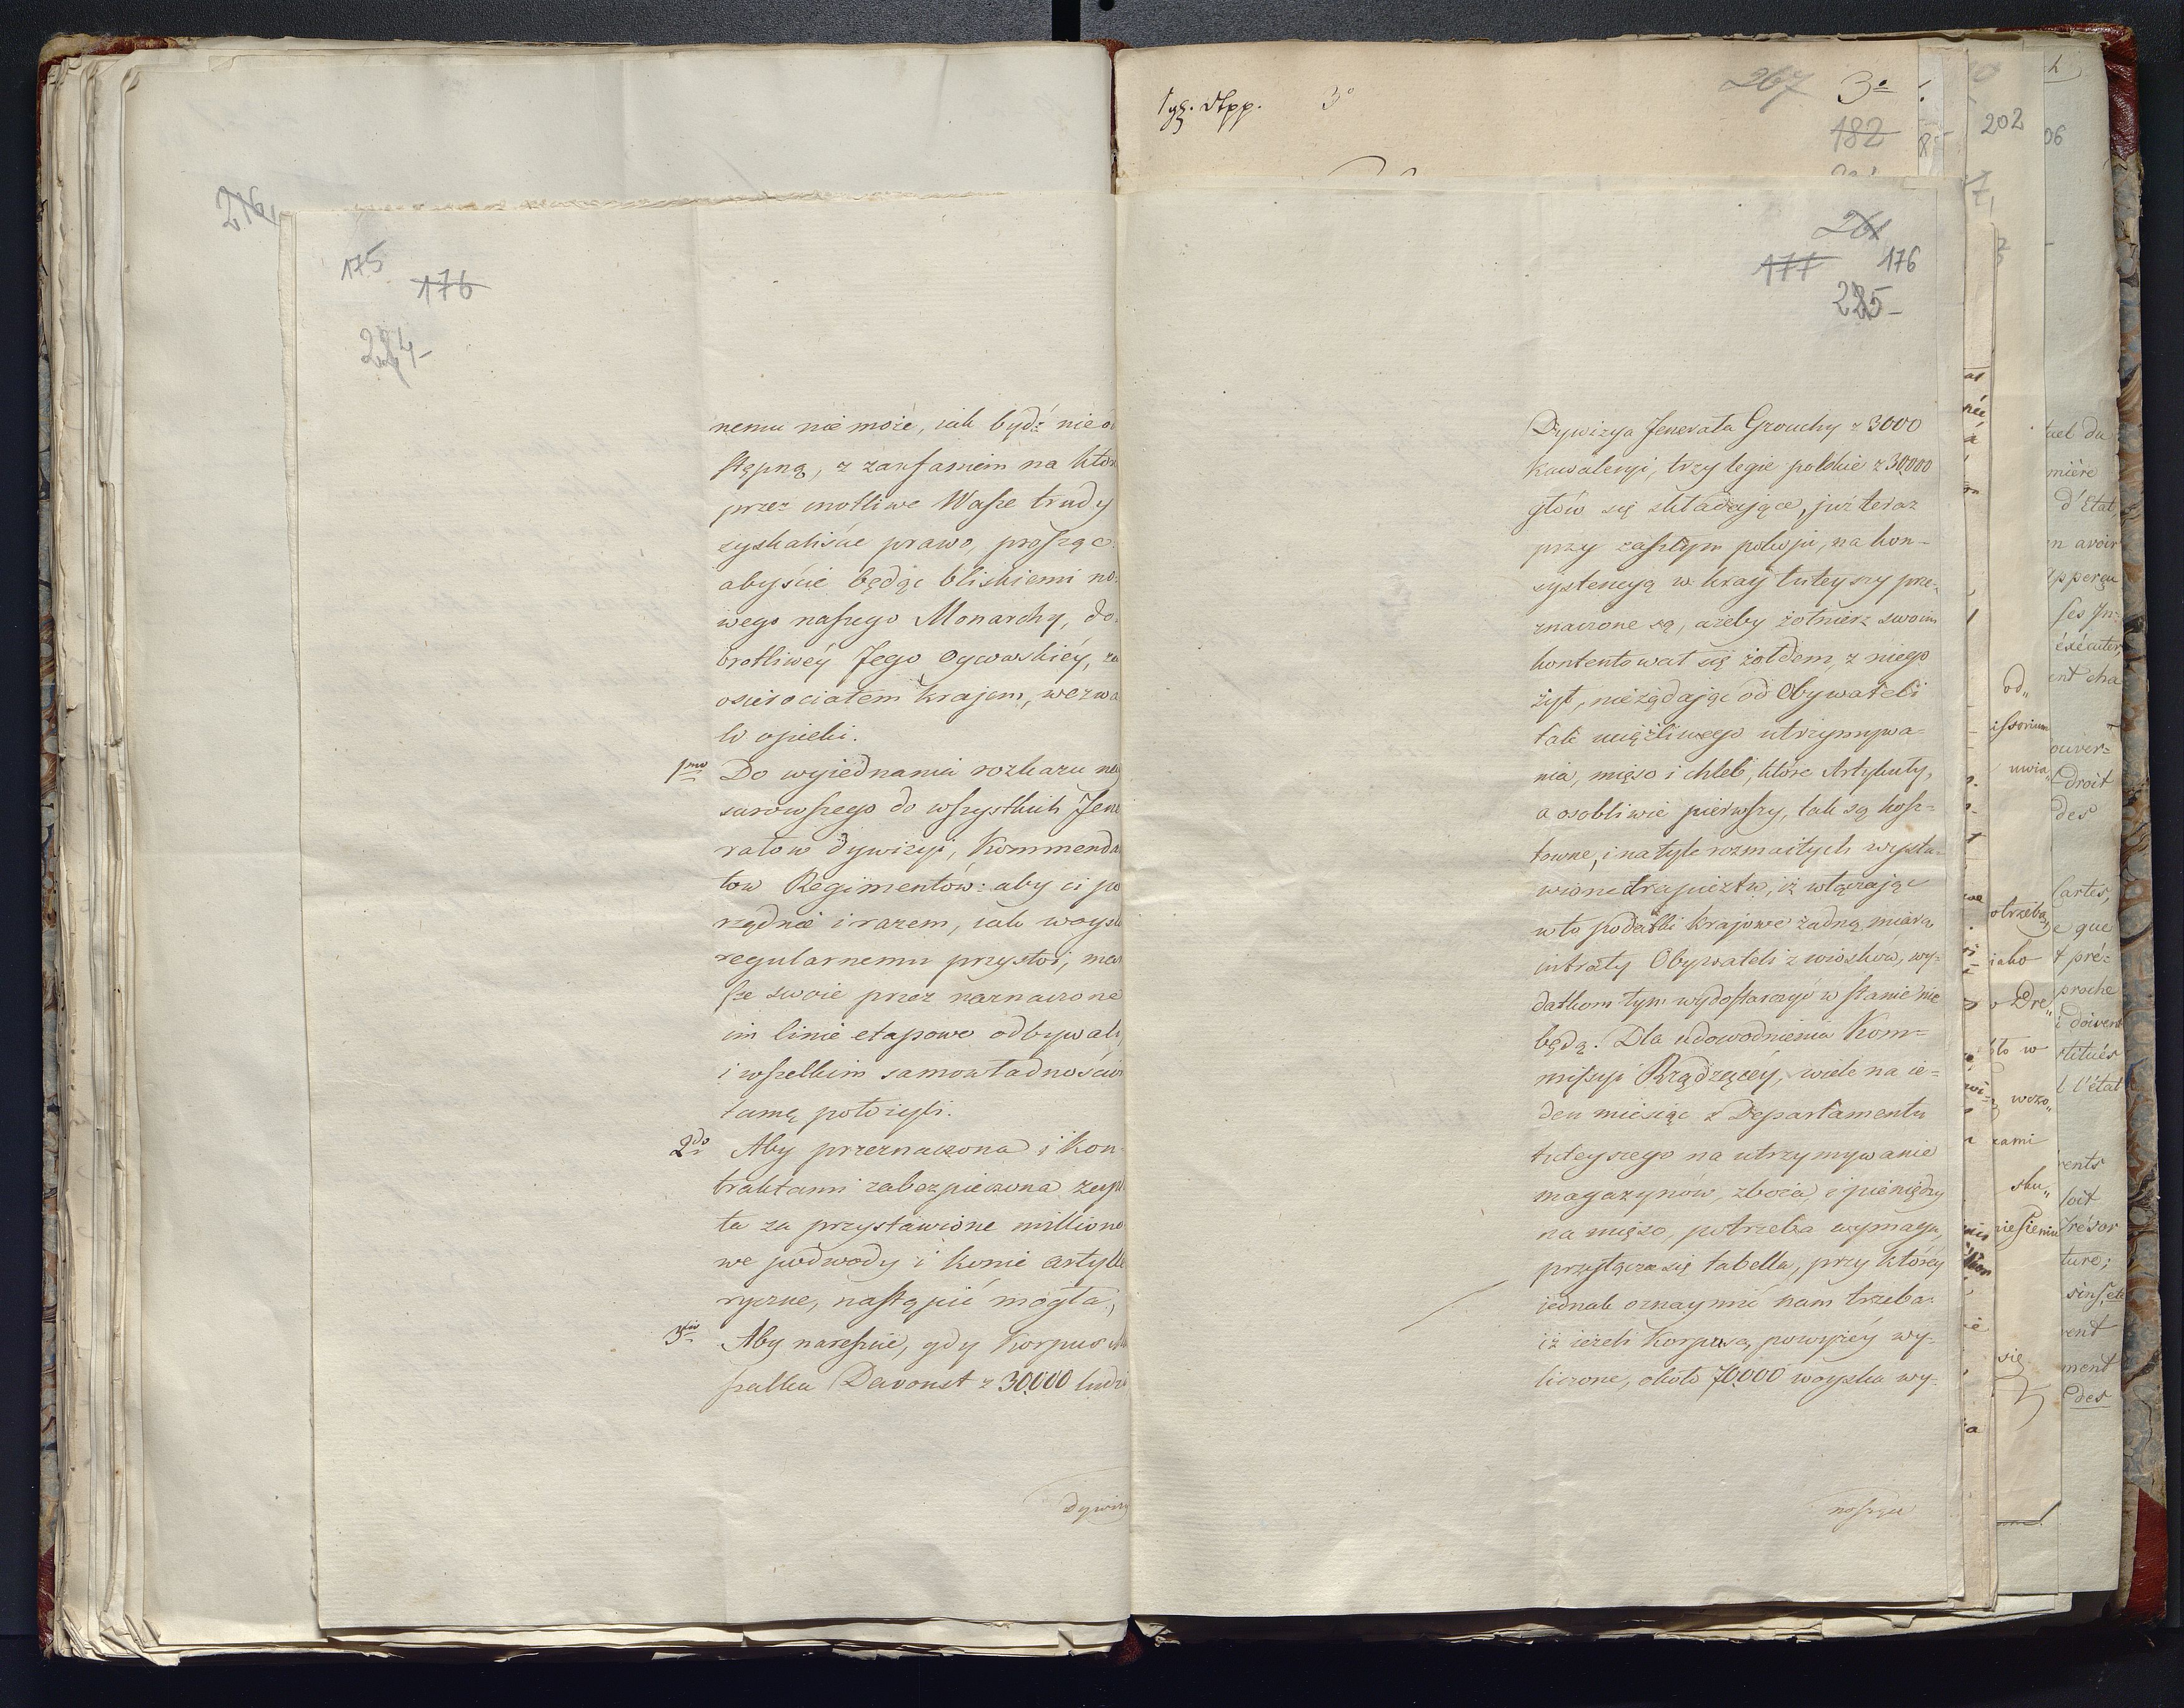 216
175
176
224-
nemu nie może, iak bydź nieod
stępną, z zaufaniem na któr
przez cnotliwe Wasze trudy
zyskaliście prawo, prosząc
abyście będąc bliskiemi no-
wego naszego Monarchy, do-
brotliwéy Jego Oycowskiéy, za
osierociałem krajem, wezwa
li opieki.
1mo Do wyiednania rozkazu nay
surowszego do wszystkich Jene
rałow dywizyi, Kommendan
tow Regimentów: aby ci po
rządnie i razem, iak woysk
regularnemu przystoi, mar
sze swoie przez naznaczone
im linie etapowe odbywali,
i wszelkim samowładnościo
tamę położyli.
2do Aby przeznaczona i Kon-
traktami zabezpieczona zapł
ta za przystawione milliono
we podwody i konie artylle
ryczne, nastąpić mogła,
3tio Aby nareszcie, gdy Korpus Ma
szałka Davoust z 30,000 ludzi
Dywizy
3°
267
3o
182
261
177
176
225-
Dywizya Jenerała Grouchy z 3000
kawaleryi, trzy legie polskie z 30,000
głów się składające, już teraz
przy zaszłym pokoju, na kon-
systencyą w kray tuteyszy prze-
znaczone są, ażeby żołnierz swoim
kontentował się żołdem, z niego
żył, nieżądając od Obywateli
tak uciążliwego utrzymywa-
nia, mięso i chleb, które Artykuły,
a osobliwie pierwszy, tak są kosz-
towne, i na tyle rozmaitych wysta-
wione zdzierstw, iż włączając
w to podatki krajowe żadną miarą
intraty Obywateli z wiosków, wy-
datkom tym wydostarczyć w stanie nie
będą. Dla udowodnienia Kom-
missyi Rządzącéy, wiele na ie-
den miesiąc z Departamentu
tuteyszego na utrzymywanie
magazynów, zboża, i pieniędzy
na mięso, potrzeba wymaga,
przyłącza się tabella, przy któréy
jednak oznaymić nam trzeba:
iż ieżeli Korpusa, powyżéy wy-
liczone, około 70,000 woyska wy-
noszące
202
06